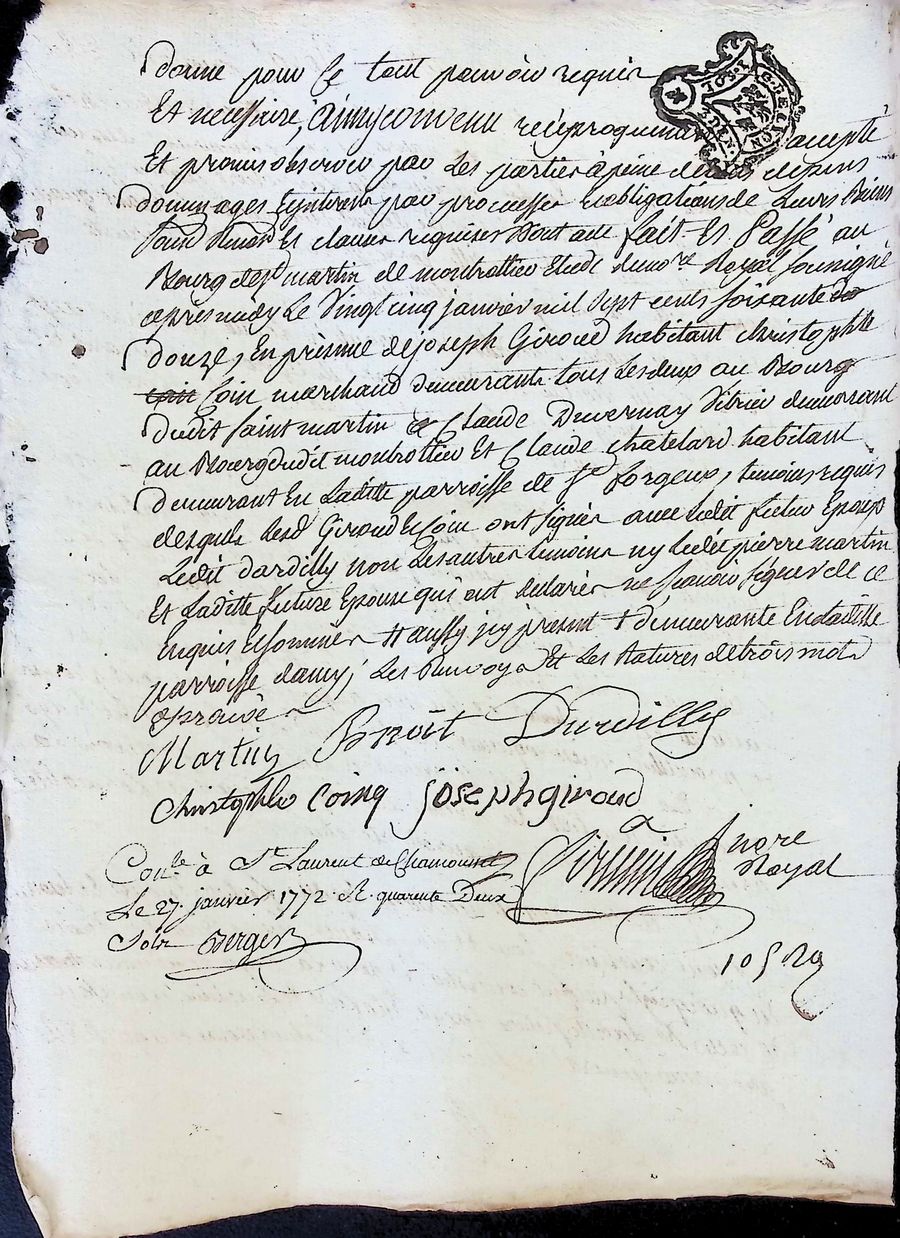 donne pour Ce tout pouvoir requis
Et necessaire, Ainsy convenu reciproquement accepté
Et promis observer par Les parties à peine de tous depens
dommages Et interests par promesses Et obligations de Leurs Biens
Et clauses requises Dont acte fait Et Passé au
Bourg de St martin de montrottier Etude du nore Royal soussigné
apres midy Le Vingt cinq janvier mil Sept cents soixante
douze, En presence de joseph Giroud habitant christophle
Coin marchand demeurants tous Les deux au Bourg
dudit saint martin Claude Duvernay Vitrier demeurant
au Bourg dudit montrottier Et Claude chatelard habitant
demeurant En Laditte parroisse de St forgeux, temoins requis
desquels Lesd Giroud Et Coin ont signés avec Ledit futur Epoux
Ledit dardilly non Les autres temoins ny Ledit pierre martin
Et Laditte future Epouse qui ont declarés ne sçavoir signer de ce
Enquis Et sommés + aussy icy present + demeurante En laditte
parroisse Les Renvoys Et Les Ratures de trois mots
approuvé
Martin Benoit Durdilly
Christophle Coinq joseph giroud
nore
Royal
Conlé à St Laurent de Chamousset
Le 27 janvier 1772 R quarente Deux
Sols Berger